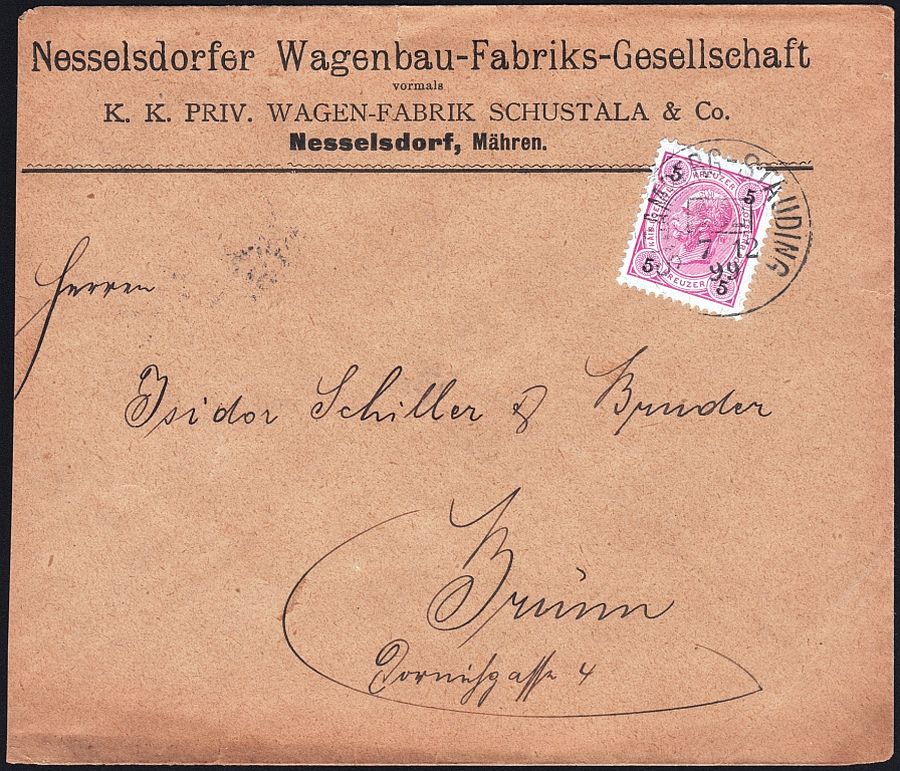 Nesselsdorfer Wagenbau-Fabriks-Gesellschaft
vormals
K. K. PRIV. WAGEN-FABRIK SCHUSTALA & Co.
Nesselsdorf, Mähren.
STAUDING
7 12
99
5 KREUZER 5
5 KREUZER 5
Herren
Isidor Schiller & Bruder
Brünn
Dornichgasse 4